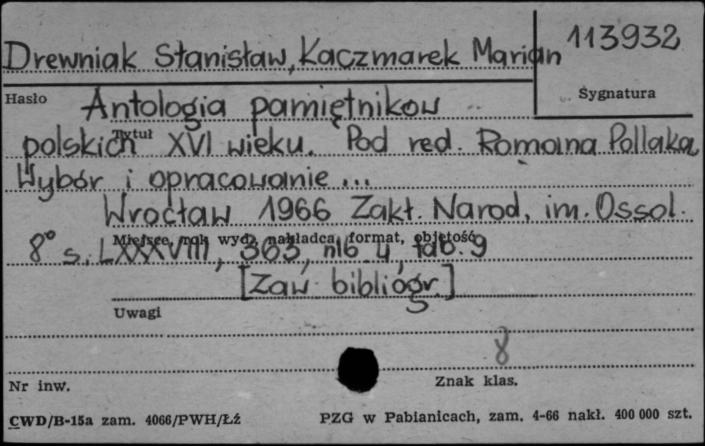 113932
Drewniak Stanisław, Kaczmarek Marian
Hasło
Sygnatura
Antologia pamiętników
Tytuł
polskich XVI wieku. Pod red. Romana Pollaka
Wybór i opracowanie ...
Wrocław 1966 Zakł. Narod. im. Ossol.
Miejsce, rok wyd., nakładca, format, objętość
8° s. LXXXVIII, 363, nlb 4, tab. 9
[Zaw. bibliogr.]
Uwagi
8
Nr inw.
Znak klas.
CWD/B-15a zam. 4066/PWH/ŁŹ
PZG w Pabianicach, zam. 4-66 nakł. 400 000 szt.